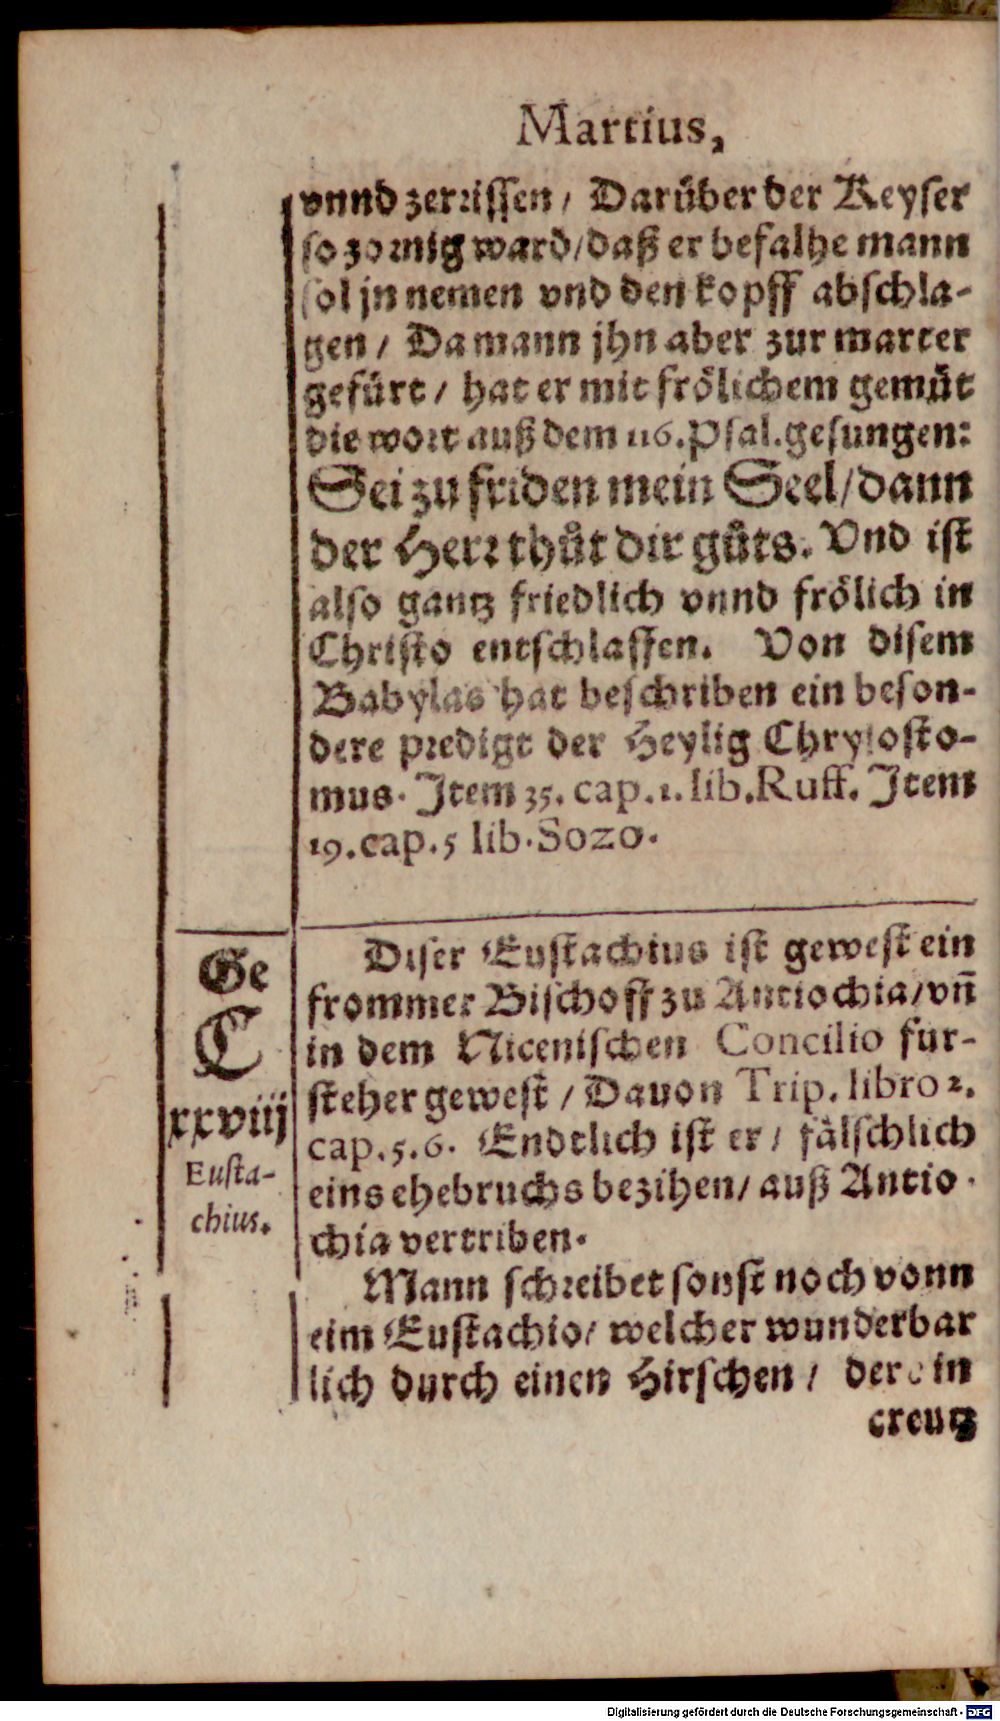 Martius,
vnnd zerrissen / Darüber der Keyser
so zornig ward / daß er befalhe mann
sol jn nemen vnd den kopff abschla-
gen / Da mann jhn aber zur marter
gefürt / hat er mit frölichem gemüt
die wort auß dem 116. Psal. gesungen:
Sei zu friden mein Seel / dann
der Herr thůt dir gůts. Vnd ist
also gantz friedlich vnnd frölich in
Christo entschlaffen. Von disem
Babylas hat beschriben ein beson-
dere predigt der Heylig Chrysosto-
mus. Item 35. cap. 1. lib. Ruff. Item
19. cap. 5 lib. Sozo.
Ge
C
xxviij
Eusta-
chius.
Diser Eustachius ist gewest ein
frommer Bischoff zu Antiochia / vñ
in dem Nicenischen Concilio fur-
steher gewest / Dauon Trip. libro 2.
cap. 5. 6. Endtlich ist er / fälschlich
eins ehebruchs bezihen / auß Antio-
chia vertriben.
Mann schreibet sonst noch vonn
eim Eustachio / welcher wunderbar
lich durch einen Hirschen / der ein
creutz
Digitalisierung gefördert durch die Deutsche Forschungsgemeinschaft - DFG